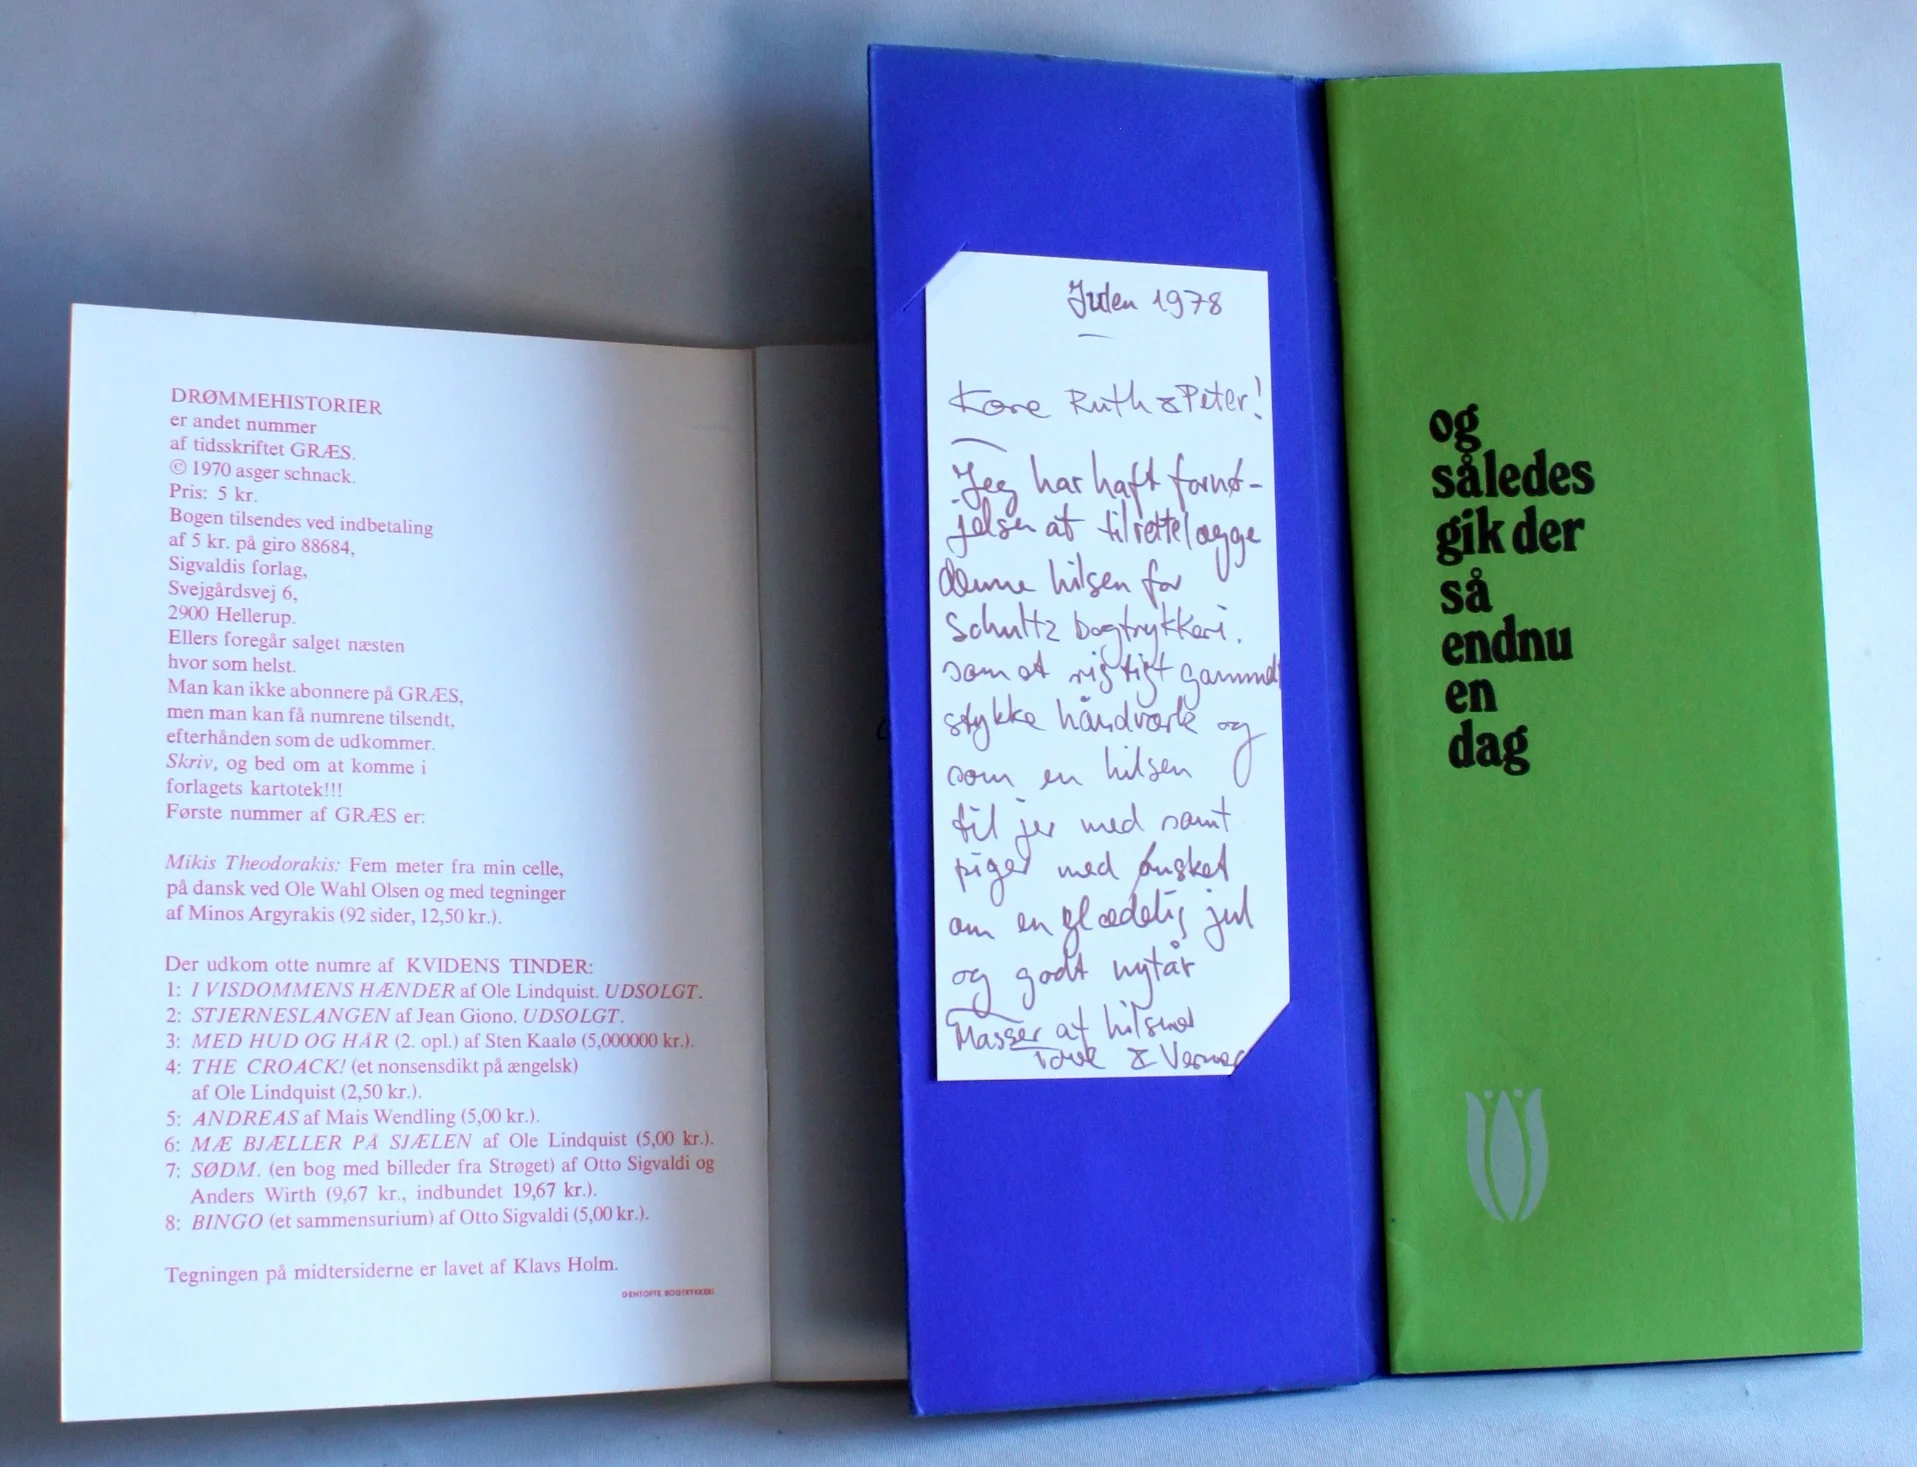 DRØMMEHISTORIER
er andet nummer
af tidsskriftet GRÆS.
© 1970 asger schnack.
Pris: 5 kr.
Bogen tilsendes ved indbetaling
af 5 kr. på giro 88684,
Sigvaldis forlag,
Svejgårdsvej 6,
2900 Hellerup.
Ellers foregår salget næsten
hvor som helst.
Man kan ikke abonnere på GRÆS,
men man kan få numrene tilsendt,
efterhånden som de udkommer.
Skriv, og bed om at komme i
forlagets kartotek!!!
Første nummer af GRÆS er:
Mikis Theodorakis: Fem meter fra min celle,
på dansk ved Ole Wahl Olsen og med tegninger
af Minos Argyrakis (92 sider, 12,50 kr.).
Der udkom otte numre af KVIDENS TINDER:
1: I VISDOMMENS HÆNDER af Ole Lindquist. UDSOLGT.
2: STJERNESLANGEN af Jean Giono. UDSOLGT.
3: MED HUD OG HÅR (2. opl.) af Sten Kaalø (5,000000 kr.).
4: THE CROACK! (et nonsensdikt på ængelsk)
af Ole Lindquist (2,50 kr.).
5: ANDREAS af Mais Wendling (5,00 kr.).
6: MÆ BJÆLLER PÅ SJÆLEN af Ole Lindquist (5,00 kr.).
7: SØDM. (en bog med billeder fra Strøget) af Otto Sigvaldi og
Anders Wirth (9,67 kr., indbundet 19,67 kr.).
8: BINGO (et sammensurium) af Otto Sigvaldi (5,00 kr.).
Tegningen på midtersiderne er lavet af Klavs Holm.
GENTOFTE BOGTRYKKERI
Julen 1978
Kære Ruth & Peter!
Jeg har haft fornø-
jelsen at tilrettelægge
denne hilsen for
Schultz bogtrykkeri.
som et rigtigt gammelt
stykke håndværk og
som en hilsen
til jer med samt
piger med ønsket
om en glædelig jul
og godt nytår
Masser af hilsner
& Verner
og
således
gik der
så
endnu
en
dag